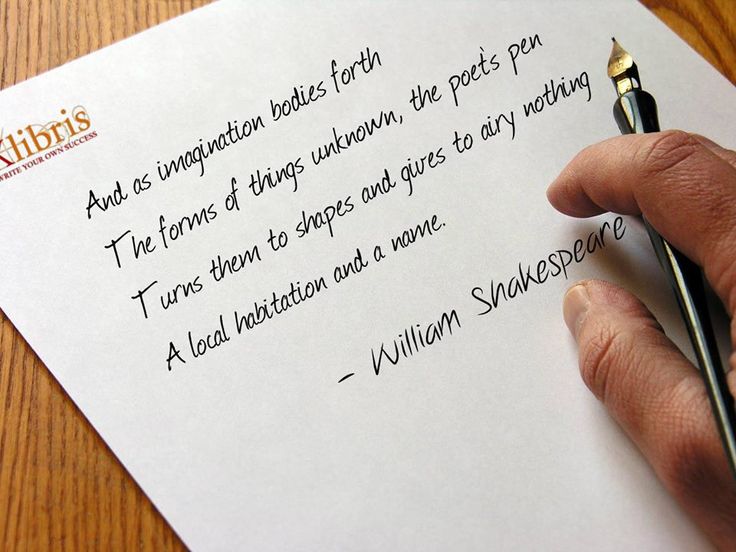 libris
WRITE YOUR OWN SUCCESS
And as imagination bodies forth
The forms of things unknown, the poet's pen
Turns them to shapes and gives to airy nothing
A local habitation and a name.
- William Shakespeare